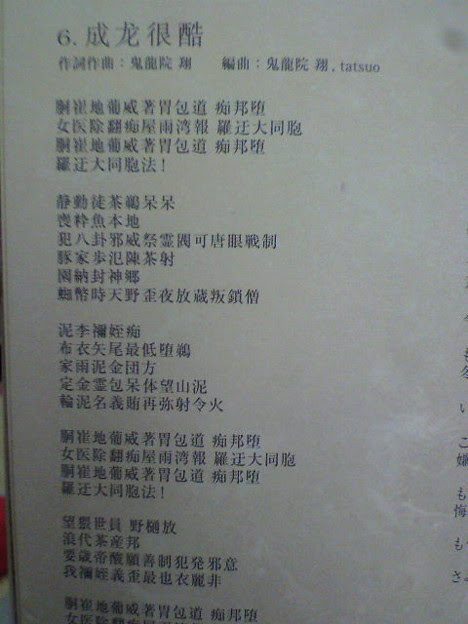 6. 成龙很酷
作詞作曲：鬼龍院 翔　　編曲：鬼龍院 翔, tatsuo
胴崔地葡威著胃包道 痴邦堕
女医除翻痴屋雨湾報 羅迂大同胞
胴崔地葡威著胃包道 痴邦堕
羅迂大同胞法！
静動徒茶鵜呆呆
喪粋魚本地
犯八卦邪威祭霊閥可唐眼戦制
豚家歩氾陳茶射
園納封神郷
蜘幣時天野歪夜放蔵叛鎖僧
泥李禰姪痴
布衣矢尾最低堕鵜
家雨泥金団方
定金霊包呆体望山泥
輪泥名義賄再弥射令火
胴崔地葡威著胃包道 痴邦堕
女医除翻痴屋雨湾報 羅迂大同胞
胴崔地葡威著胃包道 痴邦堕
羅迂大同胞法！
望猥世員 野樋放
浪代茶産邦
要歳帝酸願善制犯発邪意
我禰姪義歪最也衣麗非
胴崔地葡威著胃包道 痴邦堕
女医除翻痴屋雨湾報 羅迂大同胞